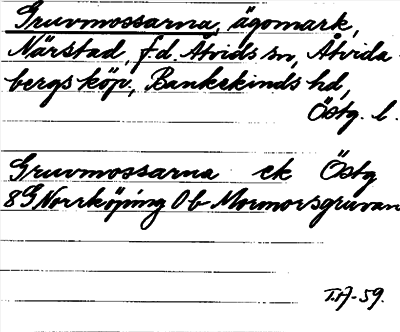 Gruvmossarna, ägomark,
Närstad, f.d. Åtvids sn, Åtvida-
bergs köp, Bankekinds hd,
Östg. l.
Gruvmossarna ek Östg
8G Norrköping 0b Mormorsgruvan
-59.